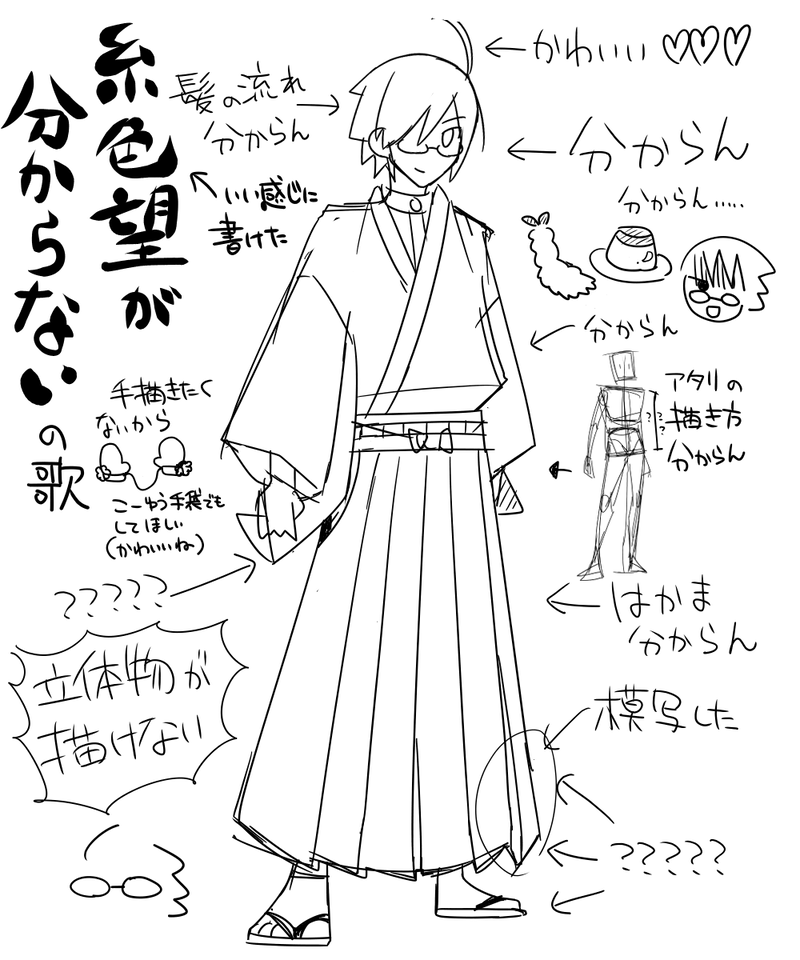 糸色望が
分からない
の歌
髪の流れ
分からん
いい感じに
書けた
かわいい♡♡♡
分からん
分からん.....
分からん
アタリの
描き方
分からん
???
手描きたく
ないから
こーゆう手袋でも
してほしい
(かわいいね)
?????
はかま
分からん
立体物が
描けない
模写した
?????